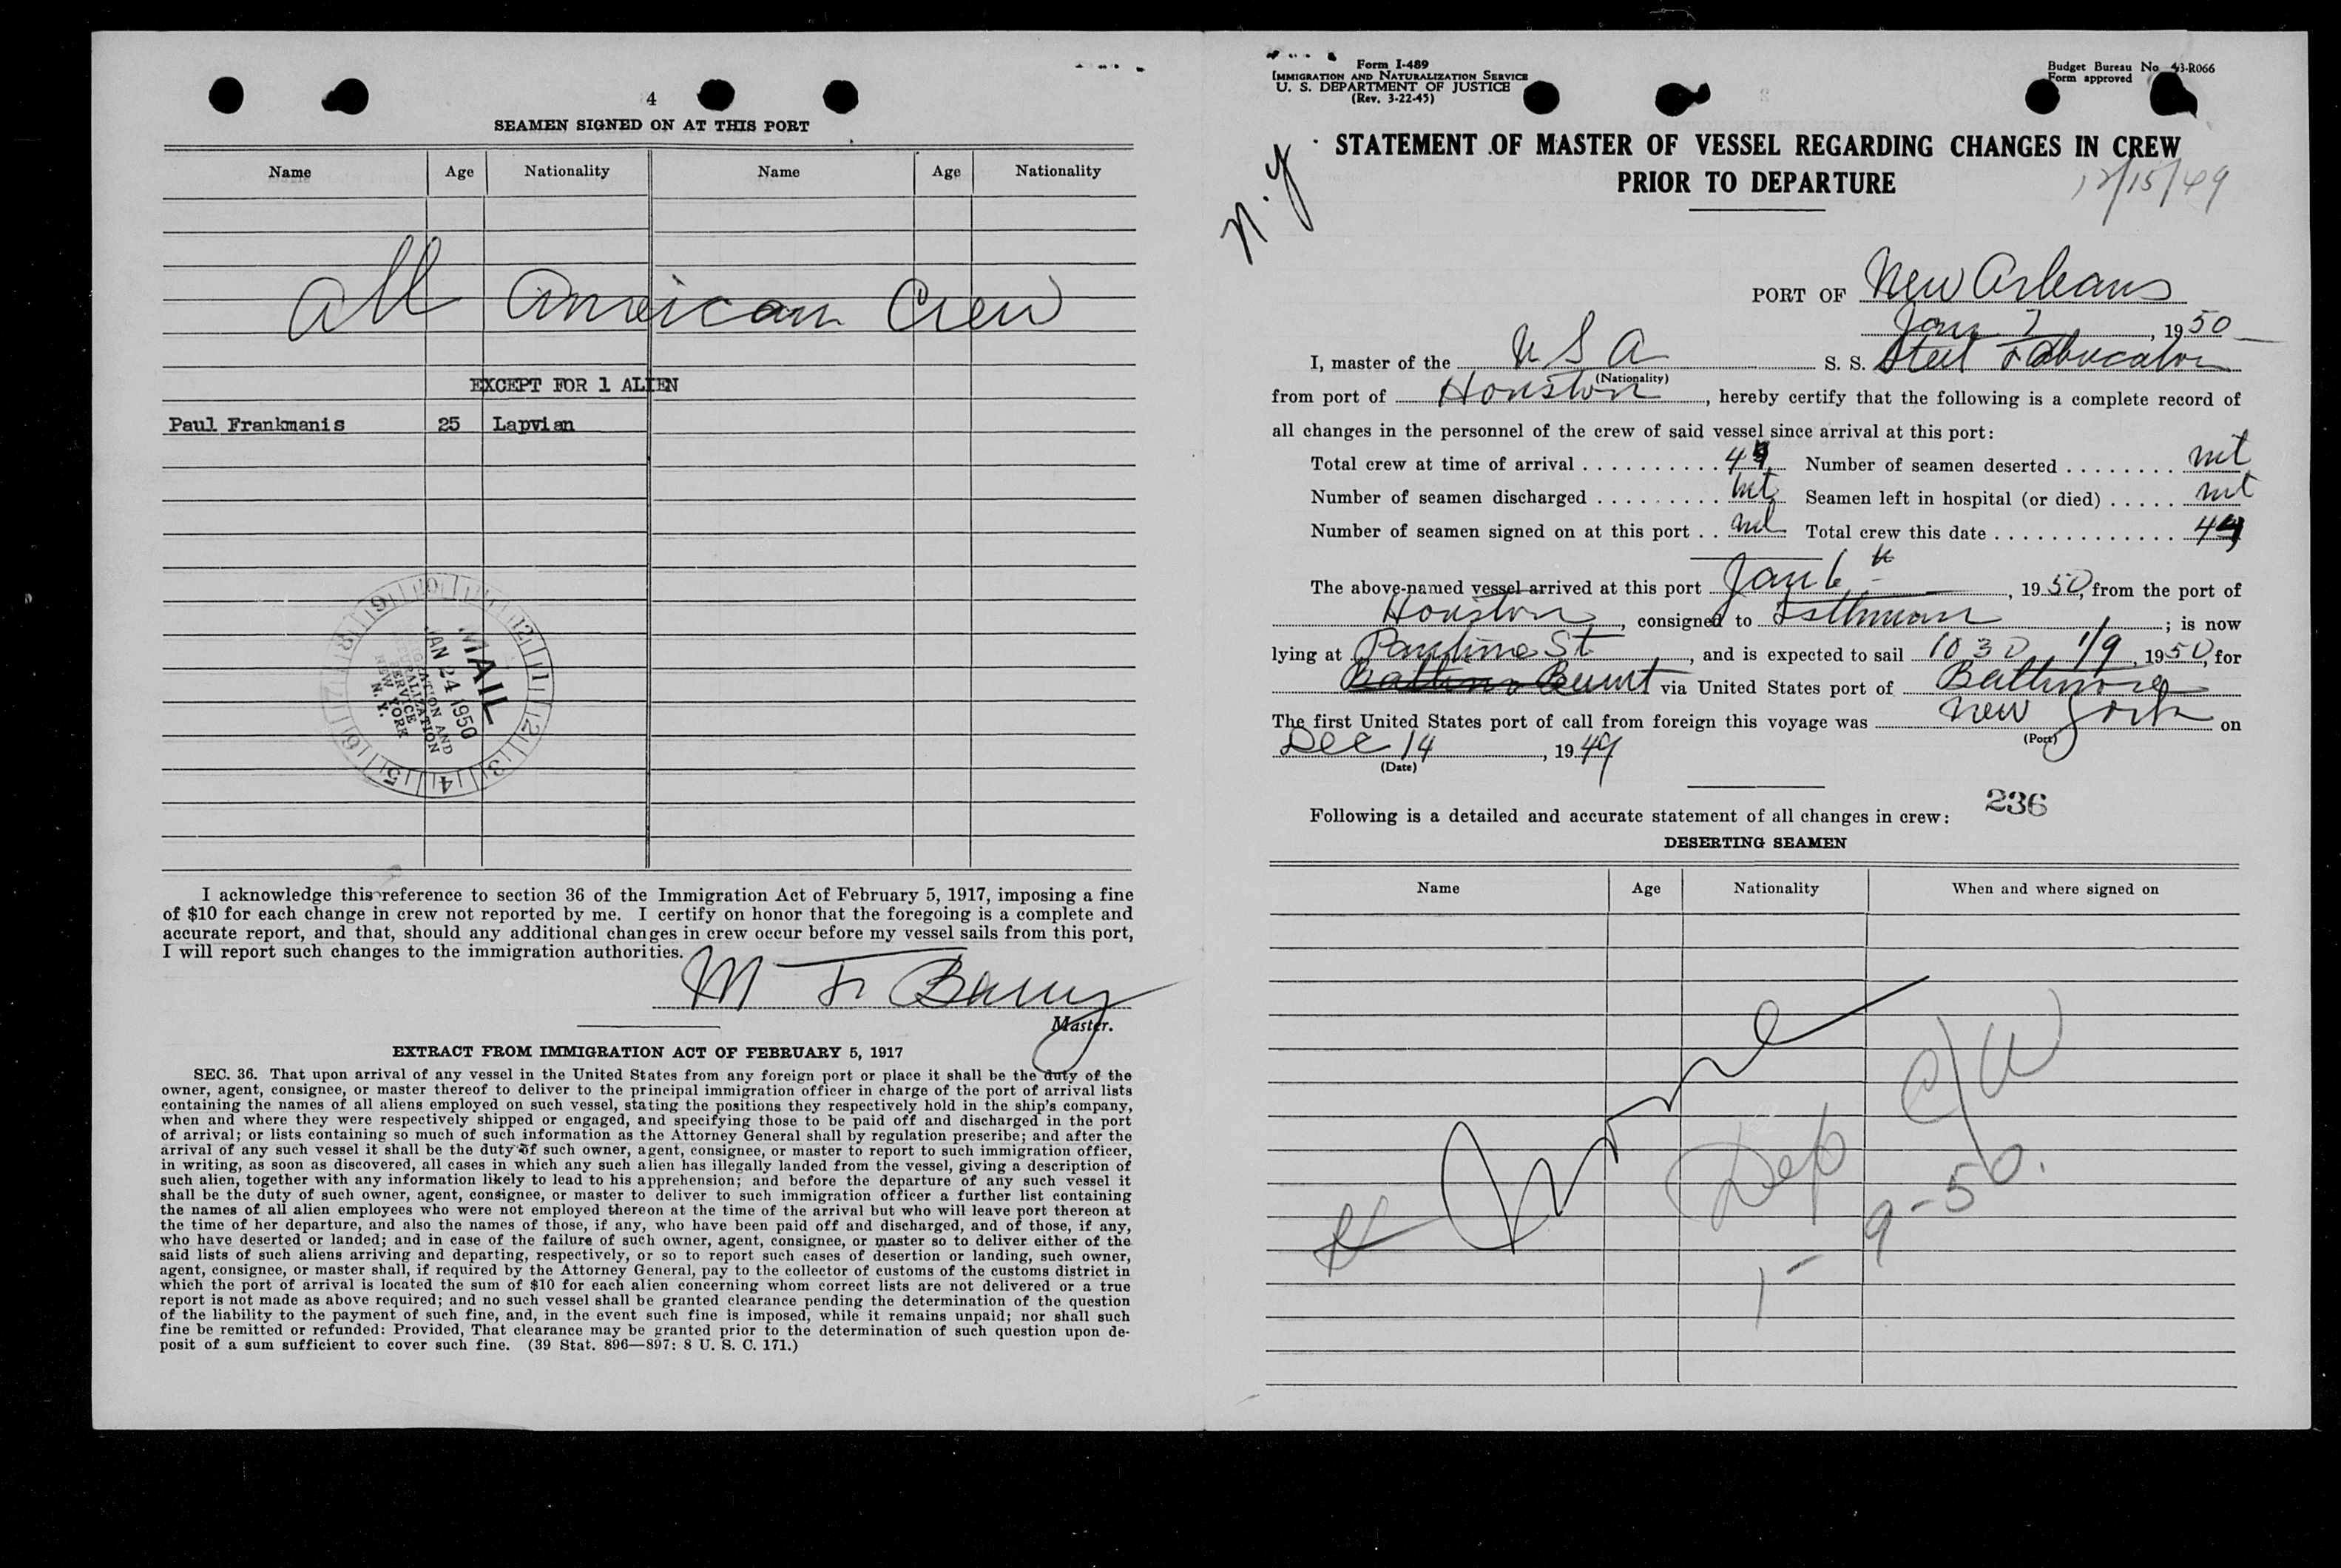 4
SEAMEN SIGNED ON AT THIS PORT
Name Age Nationality Name Age Nationality
All American Crew
EXCEPT FOR 1 ALIEN
Paul Frankmanis 25 Lapvian
MAIL
JAN 24 1950
IMMIGRATION AND
NATURALIZATION
SERVICE
NEW YORK
N. Y.
I acknowledge this reference to section 36 of the Immigration Act of February 5, 1917, imposing a fine
of $10 for each change in crew not reported by me. I certify on honor that the foregoing is a complete and
accurate report, and that, should any additional changes in crew occur before my vessel sails from this port,
I will report such changes to the immigration authorities.
M F Barry
Master.
EXTRACT FROM IMMIGRATION ACT OF FEBRUARY 5, 1917
SEC. 36. That upon arrival of any vessel in the United States from any foreign port or place it shall be the duty of the
owner, agent, consignee, or master thereof to deliver to the principal immigration officer in charge of the port of arrival lists
containing the names of all aliens employed on such vessel, stating the positions they respectively hold in the ship's company,
when and where they were respectively shipped or engaged, and specifying those to be paid off and discharged in the port
of arrival; or lists containing so much of such information as the Attorney General shall by regulation prescribe; and after the
arrival of any such vessel it shall be the duty of such owner, agent, consignee, or master to report to such immigration officer,
in writing, as soon as discovered, all cases in which any such alien has illegally landed from the vessel, giving a description of
such alien, together with any information likely to lead to his apprehension; and before the departure of any such vessel it
shall be the duty of such owner, agent, consignee, or master to deliver to such immigration officer a further list containing
the names of all alien employees who were not employed thereon at the time of the arrival but who will leave port thereon at
the time of her departure, and also the names of those, if any, who have been paid off and discharged, and of those, if any,
who have deserted or landed; and in case of the failure of such owner, agent, consignee, or master so to deliver either of the
said lists of such aliens arriving and departing, respectively, or so to report such cases of desertion or landing, such owner,
agent, consignee, or master shall, if required by the Attorney General, pay to the collector of customs of the customs district in
which the port of arrival is located the sum of $10 for each alien concerning whom correct lists are not delivered or a true
report is not made as above required; and no such vessel shall be granted clearance pending the determination of the question
of the liability to the payment of such fine, and, in the event such fine is imposed, while it remains unpaid; nor shall such
fine be remitted or refunded: Provided, That clearance may be granted prior to the determination of such question upon de-
posit of a sum sufficient to cover such fine. (39 Stat. 896—897: 8 U. S. C. 171.)
Form I-489
IMMIGRATION AND NATURALIZATION SERVICE
U. S. DEPARTMENT OF JUSTICE
(Rev. 3-22-45)
Budget Bureau No 43-R066
Form approved
N. Y
STATEMENT OF MASTER OF VESSEL REGARDING CHANGES IN CREW
PRIOR TO DEPARTURE
12/15/49
PORT OF New Orleans
Jan 7, 1950
I, master of the U S A S. S. Steel Fabricator
(Nationality)
from port of Houston, hereby certify that the following is a complete record of
all changes in the personnel of the crew of said vessel since arrival at this port:
Total crew at time of arrival . . . . . . . . . . Number of seamen deserted . . . . . . . . nil
Number of seamen discharged . . . . . . . . . nil Seamen left in hospital (or died) . . . . . nil
Number of seamen signed on at this port . . nil Total crew this date . . . . . . . . . . . . .
The above-named vessel arrived at this port Jan 6th, 1950, from the port of
Houston, consigned to Isthmian; is now
lying at Pauline St, and is expected to sail 1030 1/9, 1950, for
via United States port of Baltimore
The first United States port of call from foreign this voyage was New York on
(Port)
Dec 14, 1949
(Date)
236
Following is a detailed and accurate statement of all changes in crew:
DESERTING SEAMEN
Name Age Nationality When and where signed on
None
Dep
1-9-50.